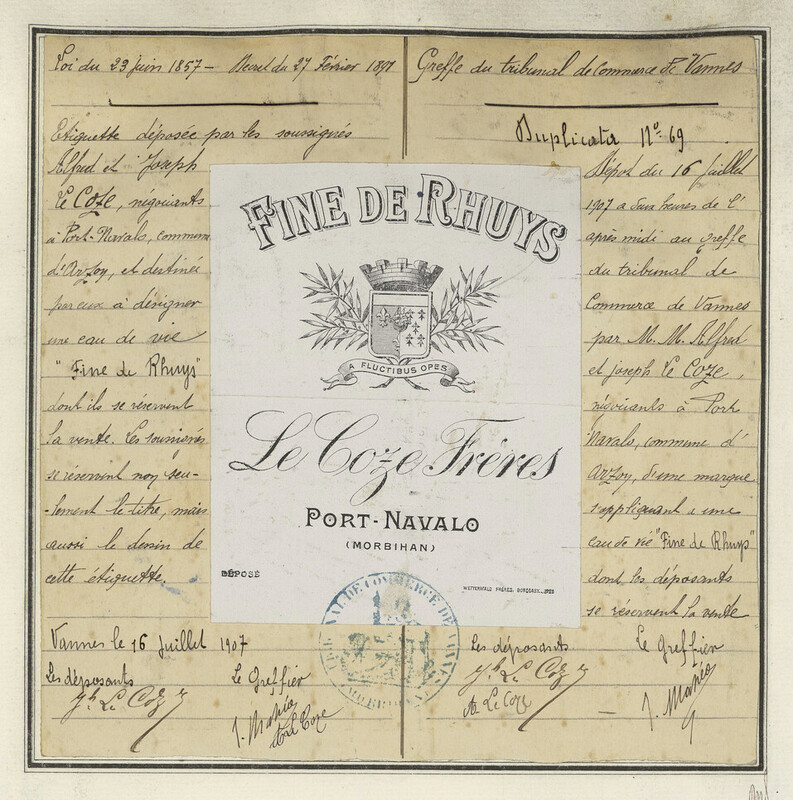 Loi du 23 juin 1857 - Décret du 27 Février 1891
Etiquette déposée par les soussignés
Alfred et Joseph
Le Coze, négociants
à Port-Navals, commune
d'Arzoy, et destinée
par eux à désigner
une eau de vie
"Fine de Rhuys"
dont ils se réservent
la vente. Les soussignés
se réservent non seu-
-lement le titre, mais
aussi le dessin de
cette étiquette.
Vannes le 16 Juillet 1907
Les déposants
Le Greffier
Jh Le Coze
J. Mahéo
A Le Coze
FINE DE RHUYS
A FLUCTIBUS OPES
Le Coze Frères
PORT-NAVALO
(MORBIHAN)
DÉPOSÉ
WETTERWALD FRÈRES. BORDEAUX.
TRIBUNAL DE COMMERCE DE VANNES
MORBIHAN
Greffe du tribunal de commerce de Vannes
Duplicata N° 69
Dépot du 16 juillet
1907 a deux heures de l'
après midi au greffe
du tribunal de
Commerce de Vannes
par M. M. Alfred
et joseph Le Coze,
négociants à Port
Navals, commune d'
Arzoy, d'une marque
s'appliquant a une
eau de vie "Fine de Rhuys"
dont les déposants
se réservent la vente
Les déposants
Le Greffier
Jh Le Coze
A Le Coze
J. Mahéo